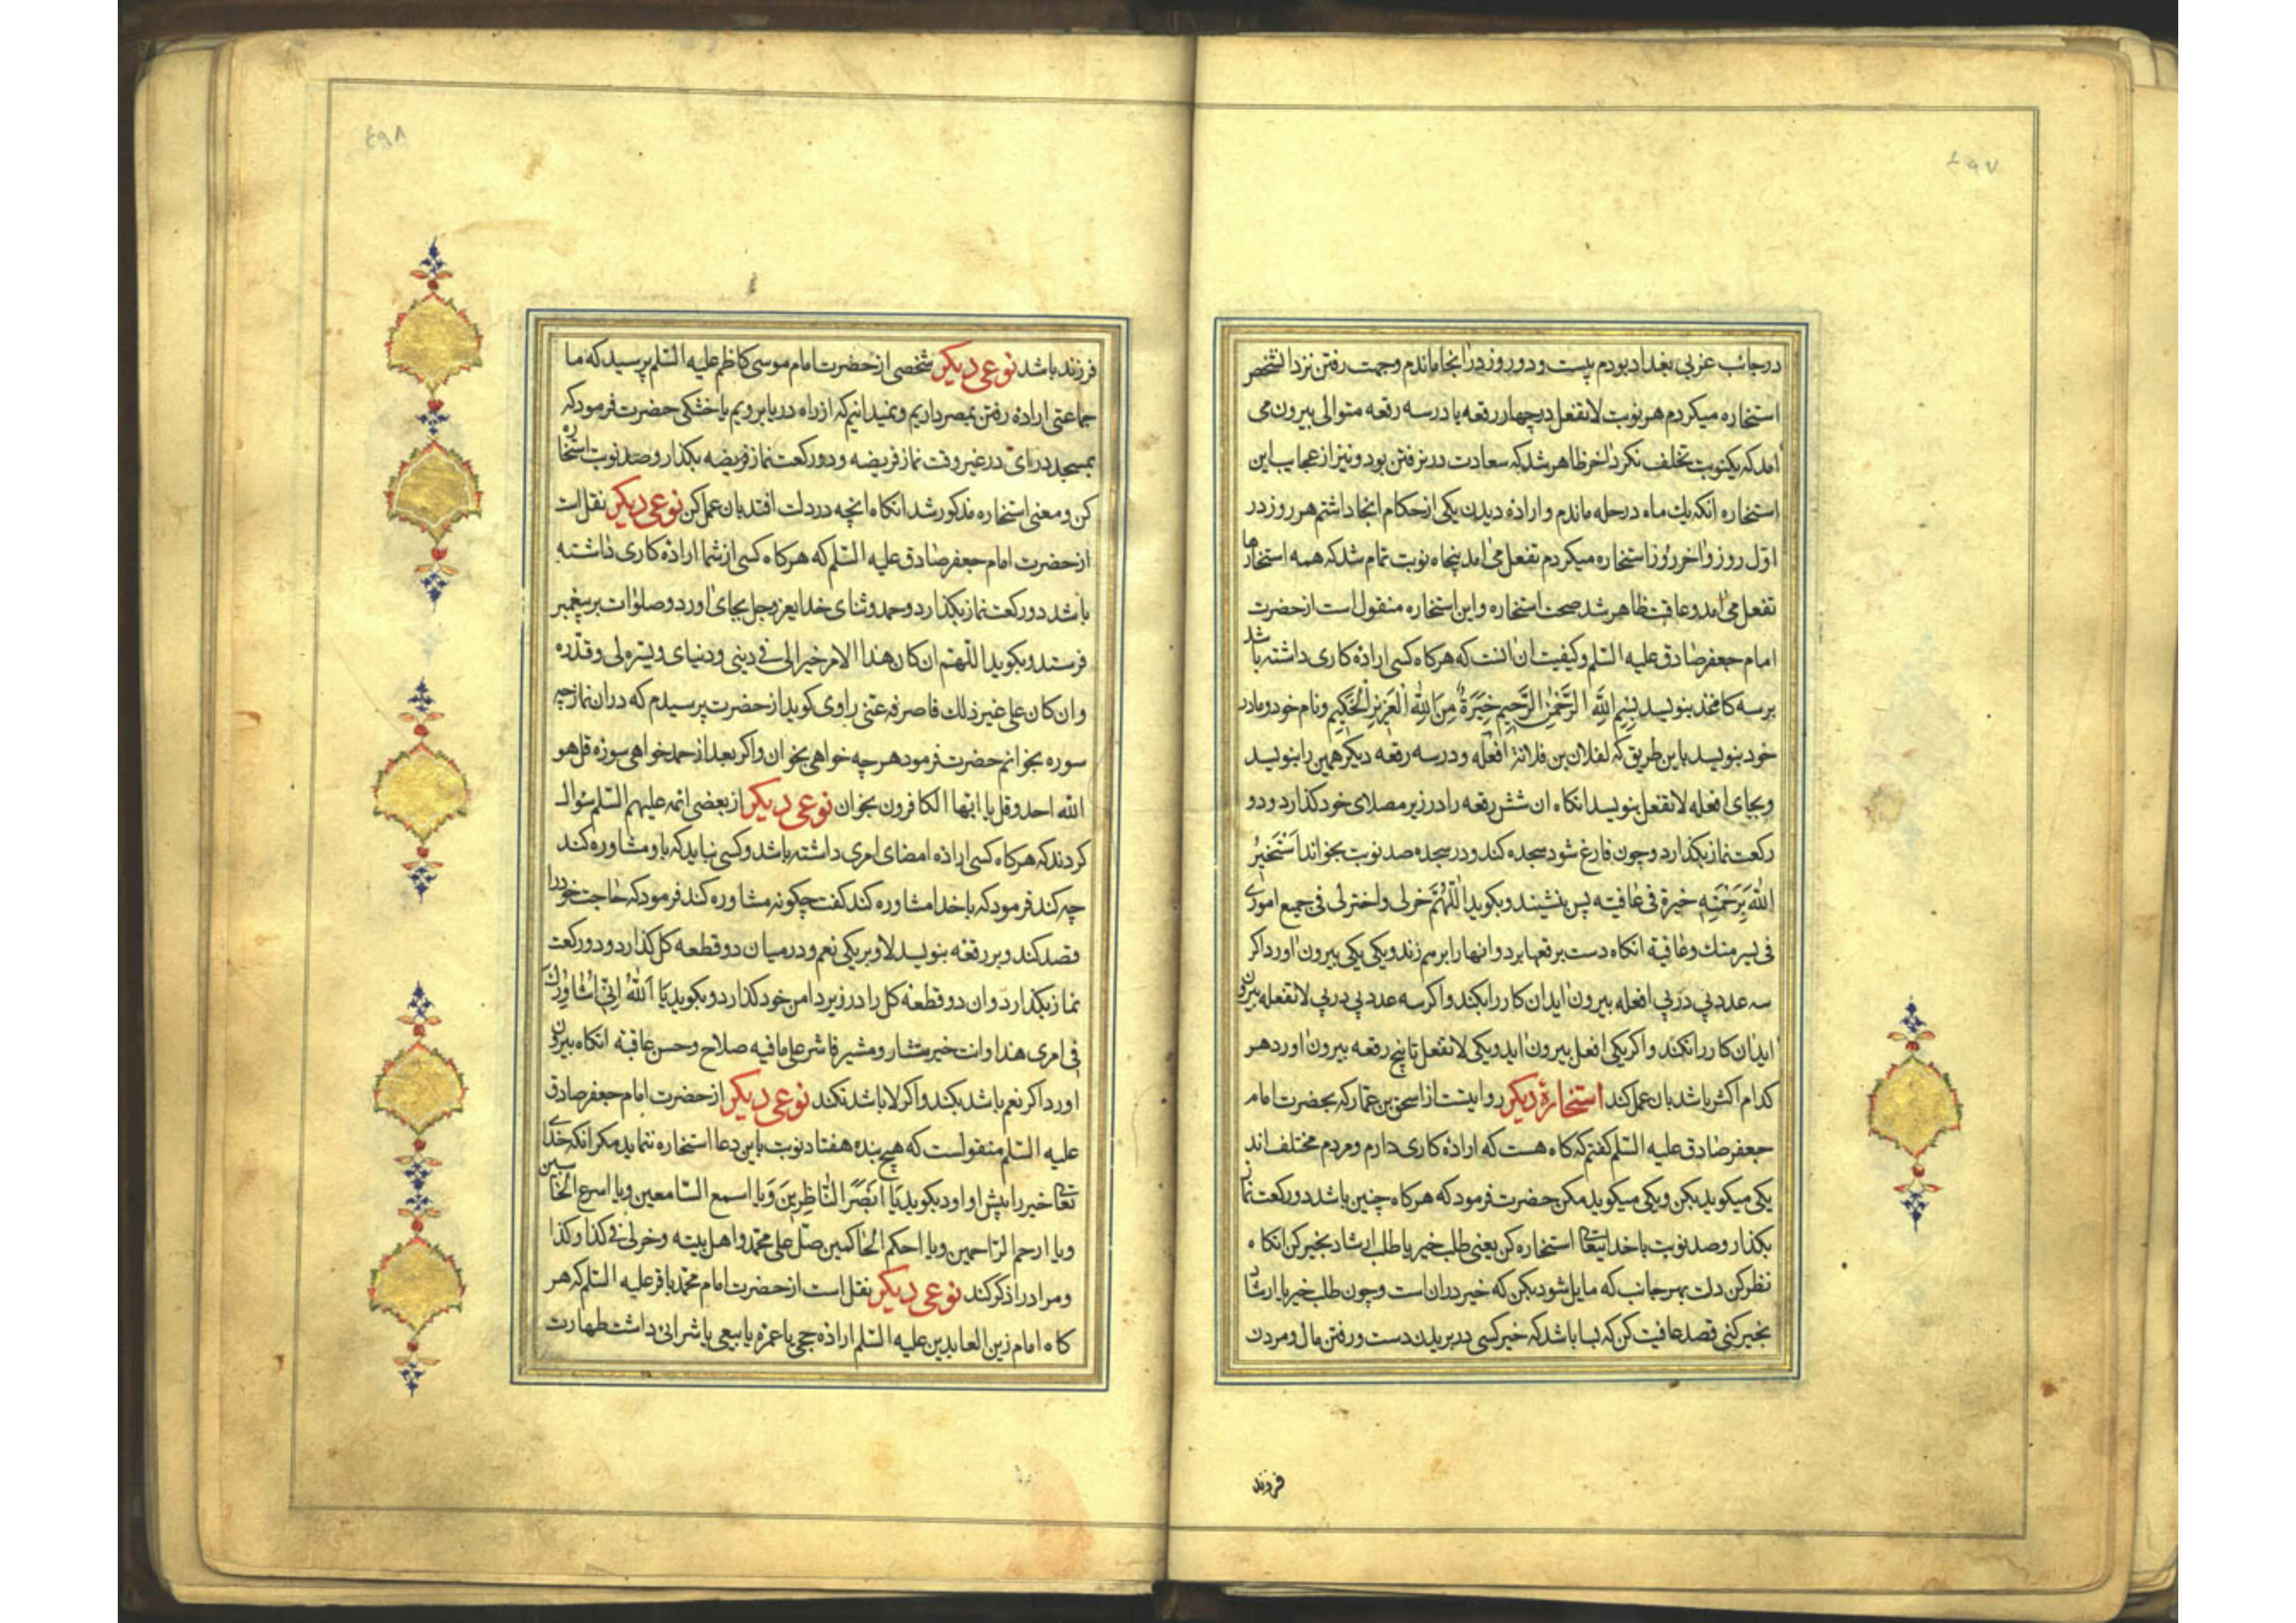 ٤٩٧
در جانب غربی بغداد بودم بیست و دو روز در انجا ماندم و جهت رفتن نزد انشخص
استخاره میکردم هر نوبت لا تفعل در چهار رقعه یا در سه رقعه متوالی بیرون می
امد که یکنوبت تخلف نکرد اخر ظاهر شد که سعادت در نرفتن بود و نیز از عجایب این
استخاره انکه یك ماه در حله ماندم و اراده دیدن یکی از حکام انجا داشتم هر روز در
اوّل روز و اخر روز استخاره میکردم تفعل می امد پنجاه نوبت تمام شد که همه استخارها
تفعل می امد و عاقبت ظاهر شد صحت استخاره و این استخاره منقول است از حضرت
امام جعفر صادق علیه السّلم و کیفیت ان انست که هر کاه کسی اراده کاری داشته باشد
بر سه کاغذ بنویسد بِسْمِ اللهِ الرَّحْمٰنِ الرَّحِیمِ خِیَرَةٌ مِنَ اللهِ الْعَزِیزِ الْحَکِیمِ و نام خود و مادر
خود بنویسد باین طریق که لفلان بن فلانة افعله و در سه رقعه دیکر همین را بنویسد
و بجای افعله لا تفعل بنویسد انکاه ان شش رقعه را در زیر مصلای خود کذارد و دو
رکعت نماز بکذارد و چون فارغ شود سجده کند و در سجده صد نوبت بخواند اَسْتَخیرُ
اللهَ بِرَحْمَتِهِ خیرة فی عافیته پس بنشیند و بکوید اللّهُمَّ خر لی و اختر لی فی جمیع اموری
فی یسر منك و عافیة انکاه دست برقعها برد و انها را بر هم زند و یکی یکی بیرون اورد اکر
سه عدد پی در پی افعله بیرون اید ان کار را بکند و اکر سه عدد پی در پی لا تفعله بیرون
اید ان کار را نکند و اکر یکی افعل بیرون اید و یکی لا تفعل تا پنج رقعه بیرون اورد هر
کدام اکثر باشد بان عمل کند استخارهٔ دیکر روایتست از اسحق بن عمار که بحضرت امام
جعفر صادق علیه السّلم کفتم که کاه هست که اراده کاری دارم و مردم مختلف اند
یکی میکوید بکن و یکی میکوید مکن حضرت فرمود که هر کاه چنین باشد دو رکعت نماز
بکذار و صد نوبت با خدایتعا استخاره کن یعنی طلب خیر یا طلب ارشاد بخیر کن انکاه
نظر کن دلت بهر جانب که مایل شود بکن که خیر در ان است و چون طلب خیر یا ارشاد
بخیر کنی قصد عافیت کن که بسا باشد که خیر کسی در بریدن دست و رفتن مال و مردن
فرزند
٤٩٨
فرزند باشد نوعی دیکر شخصی از حضرت امام موسی کاظم علیه السّلم پرسید که ما
جماعتی اراده رفتن بمصر داریم و نمیدانیم که از راه دریا برویم یا خشکی حضرت فرمود که
بمسجد درای در غیر وقت نماز فریضه و دو رکعت نماز فریضه بکذار و صد نوبت استخاره
کن و معنی استخاره مذکور شد انکاه انچه در دلت افتد بان عمل کن نوعی دیکر نقل است
از حضرت امام جعفر صادق علیه السّلم که هر کاه کسی از شما اراده کاری داشته
باشد دو رکعت نماز بکذارد و حمد و ثنای خدای عز و جل بجای اورد و صلوات بر پیغمبر
فرستد و بکوید اللّهمّ ان کان هذا الامر خیرا لی فی دینی و دنیای ویسّره لی وقدّره
وان کان علی غیر ذلك فاصرفه عنّی راوی کوید از حضرت پرسیدم که در ان نماز چه
سوره بخوانم حضرت فرمود هر چه خواهی بخوان و اکر بعد از حمد خواهی سوره قل هو
الله احد و قل یا ایها الکافرون بخوان نوعی دیکر از بعضی ائمه علیهم السّلم سؤال
کردند که هر کاه کسی اراده امضای امری داشته باشد و کسی نیابد که باو مشاوره کند
چه کند فرمود که با خدا مشاوره کند کفت چکونه مشاوره کند فرمود که حاجت خود را
قصد کند و بر رقعه بنویسد لا و بر یکی نعم و در میان دو قطعه کل کذارد و دو رکعت
نماز بکذارد و ان دو قطعه کل را در زیر دامن خود کذارد و بکوید یَا اَللهُ اِنّی اُشَاوِرُكَ
فی امری هذا و انت خیر مستشار و مشیر فاشر علی مافیه صلاح و حسن عاقبة انکاه بیرون
اورد اکر نعم باشد بکند و اکر لا باشد نکند نوعی دیکر از حضرت امام جعفر صادق
علیه السّلم منقولست که هیچ بنده هفتاد نوبت باین دعا استخاره ننماید مکر انکه خدای
تعا خیر را پیش او اورد بکوید یَا اَبْصَرَ النَّاظِرِینَ وَیا اسمع السّامعین و یا اسرع الحاسبین
و یا ارحم الرّاحمین و یا احکم الحاکمین صلّ علی محمّد و اهل بیته و خر لی فی کذا و کذا
و مراد را ذکر کند نوعی دیکر نقل است از حضرت امام محمّد باقر علیه السّلم که هر
کاه امام زین العابدین علیه السّلم اراده حجی یا عمره یا بیعی یا شرائی داشت طهارت